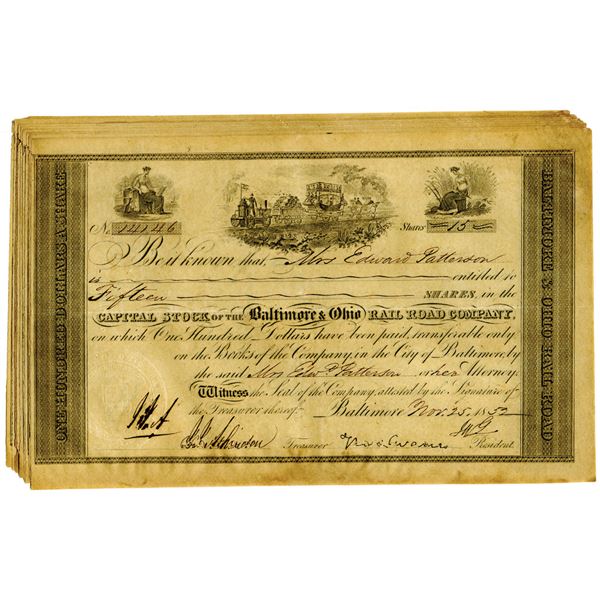 ONE HUNDRED DOLLARS A SHARE
No. 14146
Shares 15
Be it known that Mrs Edward Patterson
is entitled to
Fifteen SHARES, in the
CAPITAL STOCK OF THE Baltimore & Ohio RAIL ROAD COMPANY,
on which One Hundred Dollars have been paid, transferable only
on the Books of the Company in the City of Baltimore, by
the said Mrs Edwd. Patterson or her Attorney.
Witness the Seal of the Company, attested by the Signature of
the Treasurer thereof. Baltimore Nov. 25, 1852
Treasurer
President.
BALTIMORE & OHIO RAIL ROAD